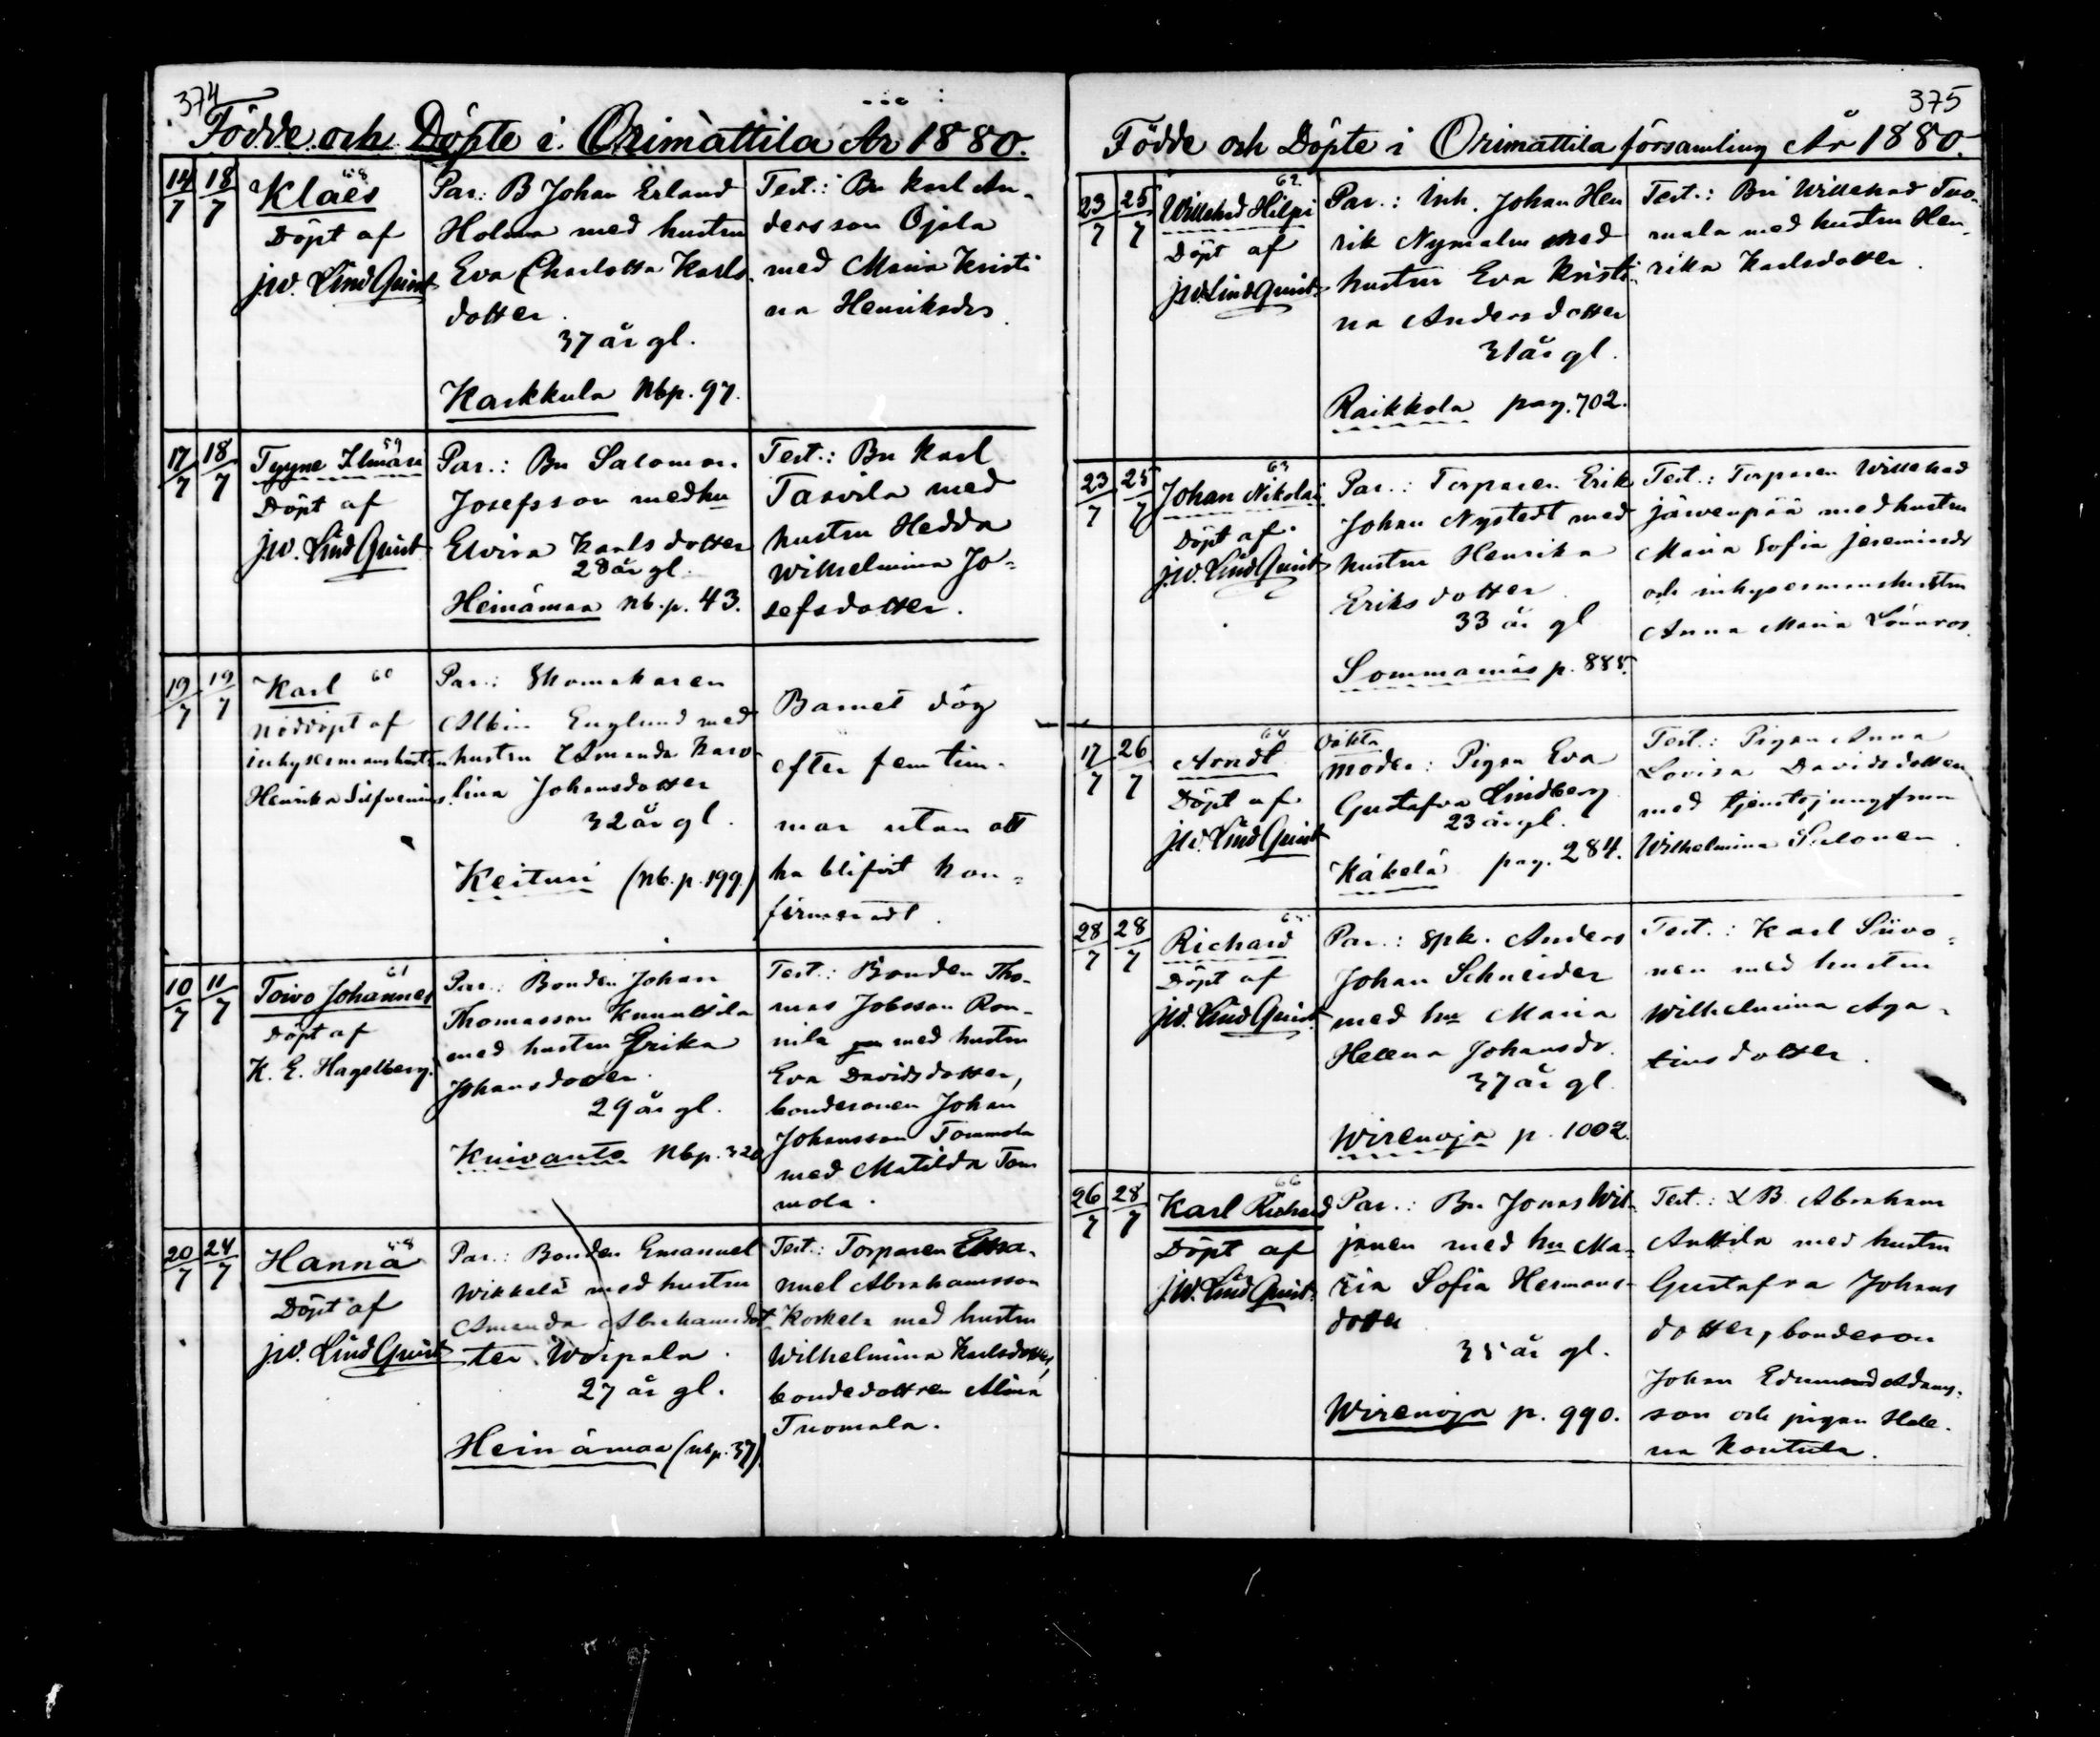 374
Födde och Döpte i Orimattila År 1880.
14/7 18/7
58
Klaes
Döpt af
J.W. LindQuist
Par: B Johan Erland
Holma med hustru
Eva Charlotta Karls-
dotter.
37 år gl.
Karkkula Nbp. 97.
Test.: Bn Karl An-
dersson Ojala
med Maria Kristi
na Henriksdr.
17/7 18/7
59
Tyyne Ilmari
Döpt af
J.W. LindQuist
Par.: Bn Salomon
Josefsson med hu
Elvira Karlsdotter
28 år gl.
Heinämaa Nb.p. 43.
Test.: Bn Karl
med
hustru Hedda
Wilhelmina Jo=
sefsdotter.
19/7 19/7
60
Karl
nöddöpt af
inhysesmanshustrun
Henrika
Par.: Skomakaren
Albin Englund med
hustru Amanda Karo-
lina Johansdotter
32 år gl.
Keituri (Nb.p. 199.)
Barnet dög
efter fem tim-
mar utan att
ha blifvit kon=
firmeradt.
10/7 11/7
61
Toivo Johannes
Döpt af
K. E. Hagelberg.
Par.: Bonden Johan
Thomasson Knuuttila
med hustru Erika
Johansdotter.
29 år gl.
Kuivanto Nbp. 320
Test.: Bonden Tho-
mas Jobsson Ron-
nila med hustru
Eva Davidsdotter,
bondesonen Johan
Johansson Tommola
med Matilda Tom
mola.
20/7 24/7
58
Hanna
Döpt af
J.W. LindQuist
Par.: Bonden Emanuel
Wikkelä med hustru
Amanda Abrahamsdot-
ter Woipala.
27 år gl.
Heinämaa (Nbp. 37).
Test.: Torparen Ema-
nuel Abrahamsson
Korkela med hustru
Wilhelmina Karlsdotter,
bondedottren Alina
Tuomala.
375
Födde och Döpte i Orimattila församling År 1880.
23/7 25/7
62
Willehad Hilpi
Döpt af
J.W. LindQuist
Par.: Inh. Johan Hen
rik Nymalm med
hustru Eva Kristi-
na Andersdotter
31 år gl.
Raikkola pag. 702.
Test.: Bn Willehad Tuo-
mala med hustru Hen-
rika Karlsdotter.
23/7 25/7
63
Johan Nikolai
Döpt af
J.W. LindQuist
Par.: Torparen Erik
Johan Nystedt med
hustru Henrika
Eriksdotter
33 år gl
Sommarnäs p. 885.
Test.: Torparen Willehad
Järvenpää med hustru
Maria Sofia Jeremiasdr
och inhysesmanshustru
Anna Maria Lönnros.
17/7 26/7
64
Arndt
Döpt af
J.W. LindQuist
Oäkta
Moder: Pigan Eva
Gustafva Lindberg
23 år gl.
Käkelä pag. 284.
Test.: Pigan Anna
Lovisa Davidsdotter
med tjenstejungfrun
Wilhelmina Salonen.
28/7 28/7
65
Richard
Döpt af
J.W. LindQuist
Par.: spk. Anders
Johan Schneider
med hu Maria
Helena Johansdr.
37 år gl.
Wirenoja p. 1002.
Test.: Karl Siivo=
nen med hustru
Wilhelmina Aga-
tiusdotter.
26/7 28/7
66
Karl Richard
Döpt af
J.W. LindQuist
Par.: Bn Jonas Wil-
janen med hu Ma-
ria Sofia Hermans-
dotter
35 år gl.
Wirenoja p. 990.
Test.: B. Abraham
Anttila med hustru
Gustafva Johans
dotter, bondeson
Johan Edmund Adams-
son och pigan Hele-
na Kontula.